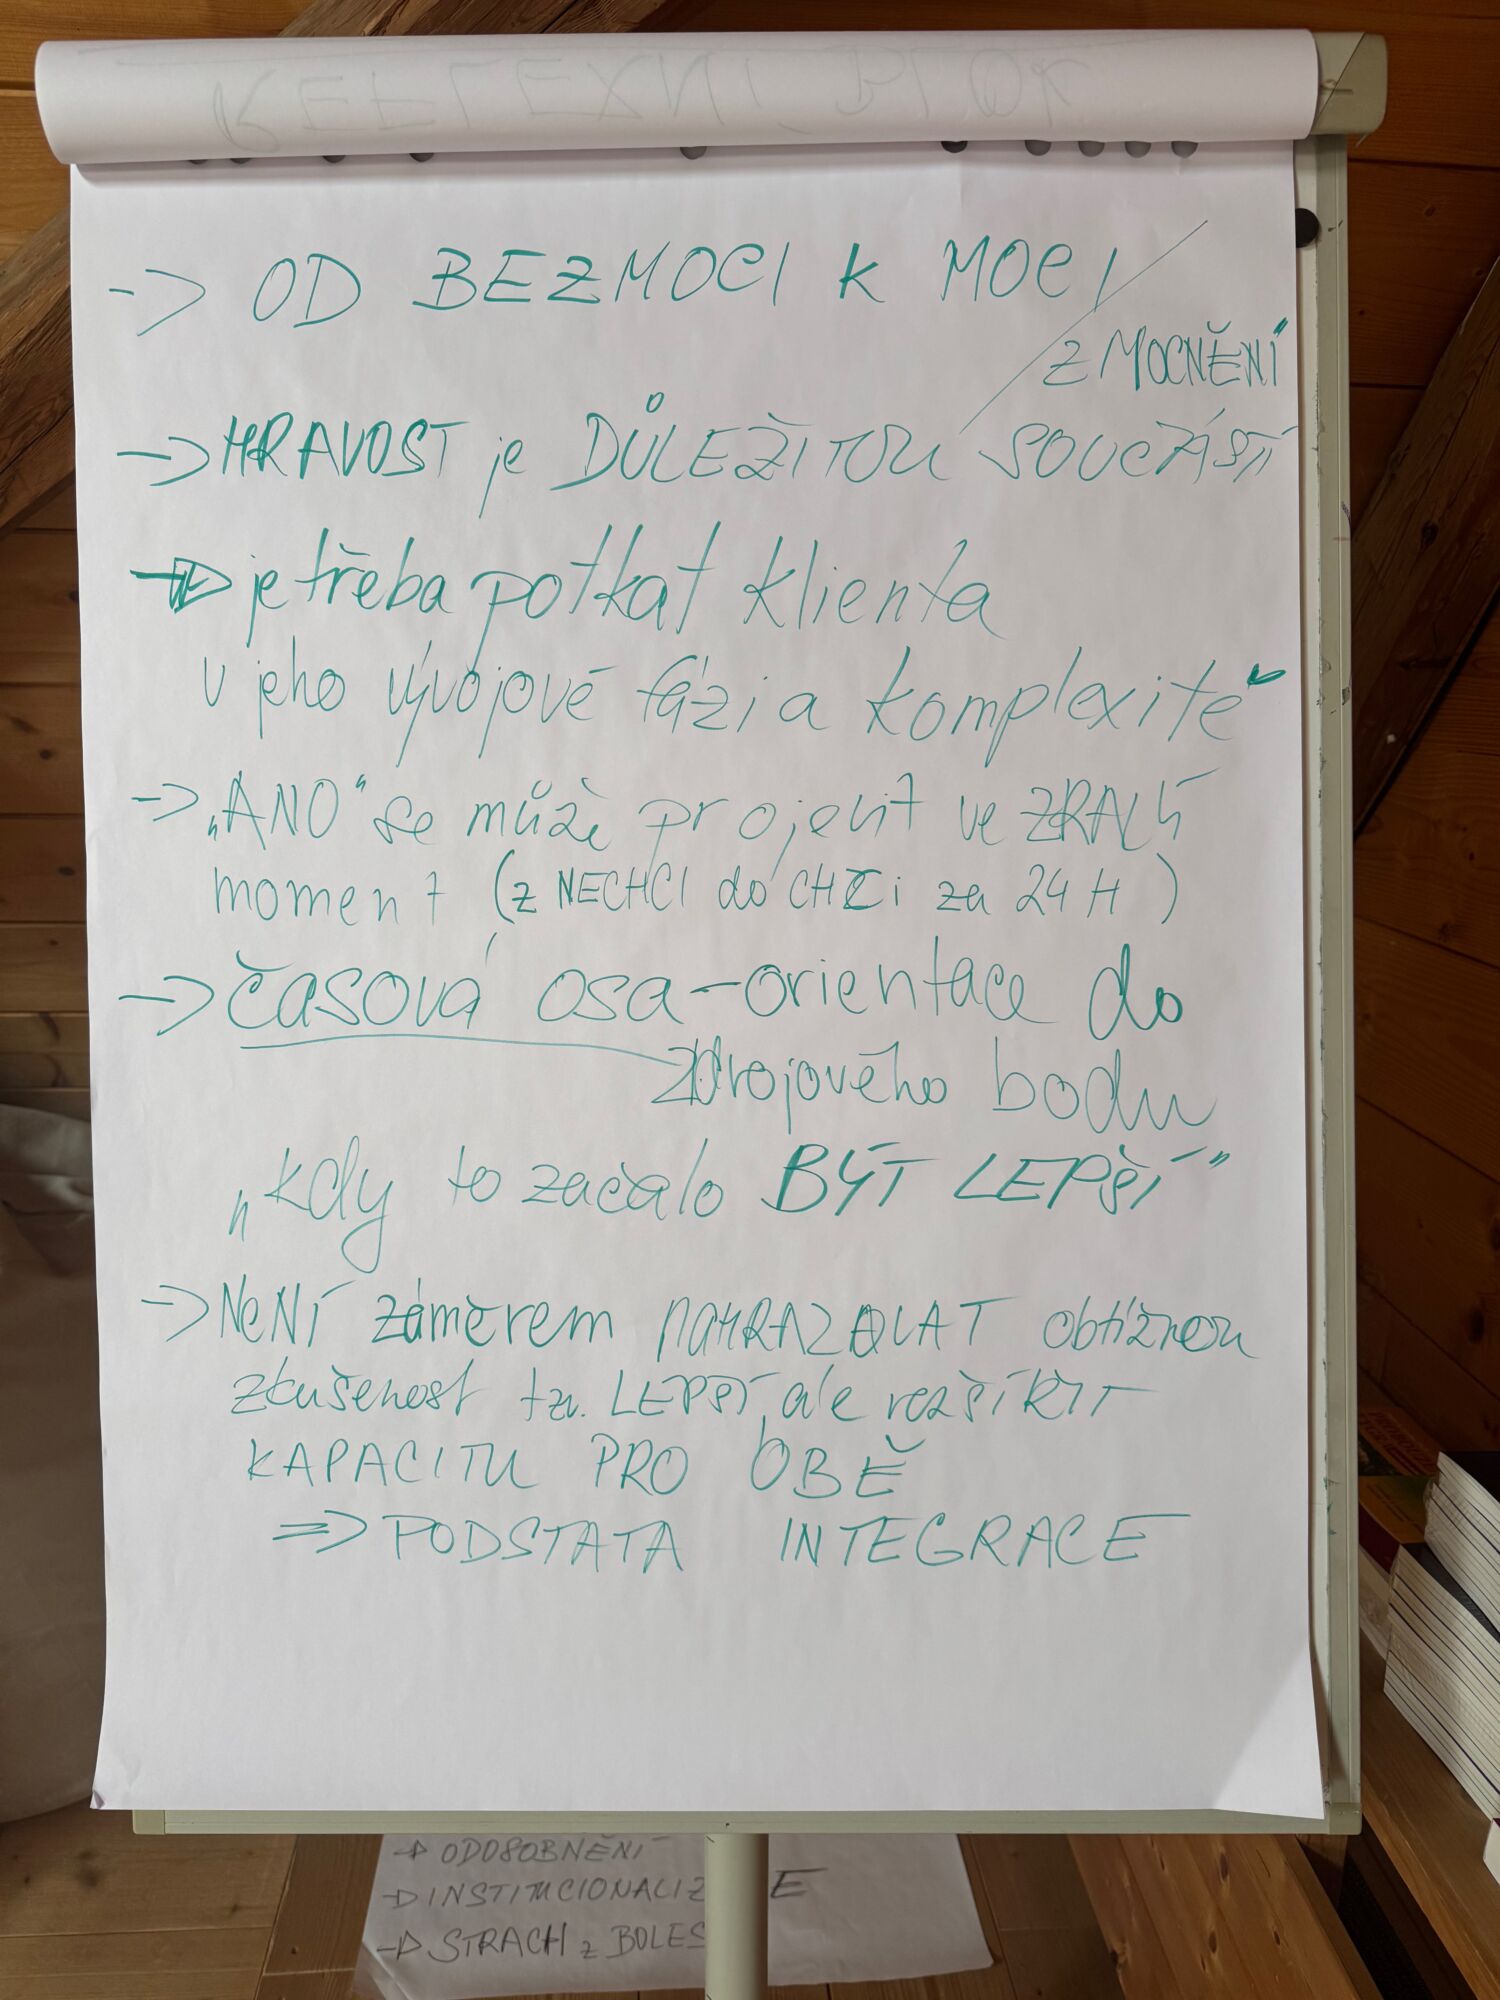 REFLEXNÍ BLOK
-> OD BEZMOCI K MOCI /
ZMOCNĚNÍ
-> HRAVOST je DŮLEŽITOU SOUČÁSTÍ
-> je třeba potkat klienta
v jeho vývojové fázi a komplexitě
-> „ANO“ se může projevit ve ZRALÝ
moment (z NECHCI do CHCI za 24 H)
-> časová osa – orientace do
zdrojového bodu
„kdy to začalo BÝT LEPŠÍ“
-> NENÍ záměrem NAHRAZOVAT obtížnou
zkušenost tzv. LEPŠÍ, ale rozšířit
KAPACITU PRO OBĚ
=> PODSTATA INTEGRACE
-> ODOSOBNĚNÍ
-> INSTITUCIONALIZ E
-> STRACH z BOLES